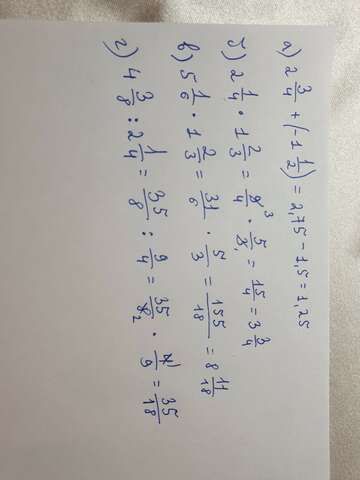 а) 2 3/4 + (-1 1/2) = 2,75 - 1,5 = 1,25
б) 2 1/4 · 1 2/3 = 9/4 · 5/3 = 15/4 = 3 3/4
в) 5 1/6 · 1 2/3 = 31/6 · 5/3 = 155/18 = 8 11/18
г) 4 3/8 : 2 1/4 = 35/8 : 9/4 = 35/8 · 4/9 = 35/18